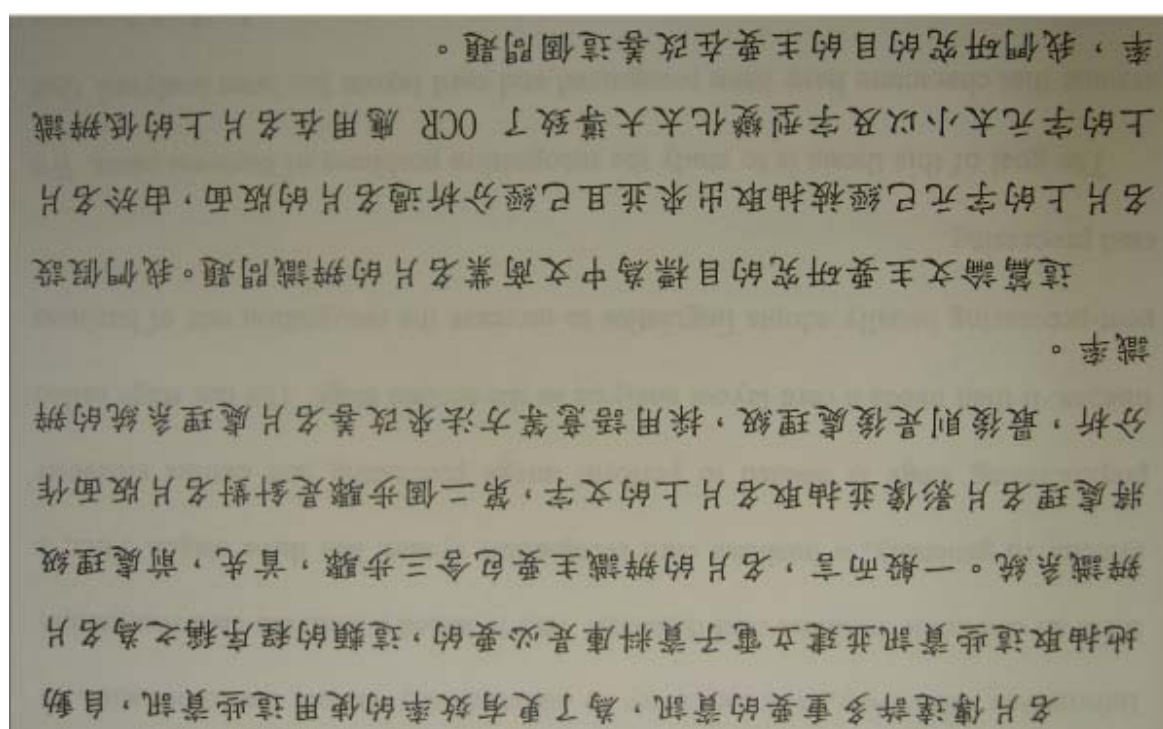 名片傳達許多重要的資訊，為了更有效率的使用這些資訊，自動
地抽取這些資訊並建立電子資料庫是必要的，這類的程序稱之為名片
辨識系統。一般而言，名片的辨識主要包含三步驟，首先，前處理級
將處理名片影像並抽取名片上的文字，第二個步驟是針對名片版面作
分析，最後則是後處理級，採用語意等方法來改善名片處理系統的辨
識率。
這篇論文主要研究的目標為中文商業名片的辨識問題。我們假設
名片上的字元已經被抽取出來並且已經分析過名片的版面，由於名片
上的字元太小以及字型變化太大導致了 OCR 應用在名片上的低辨識
率，我們研究的目的主要在改善這個問題。